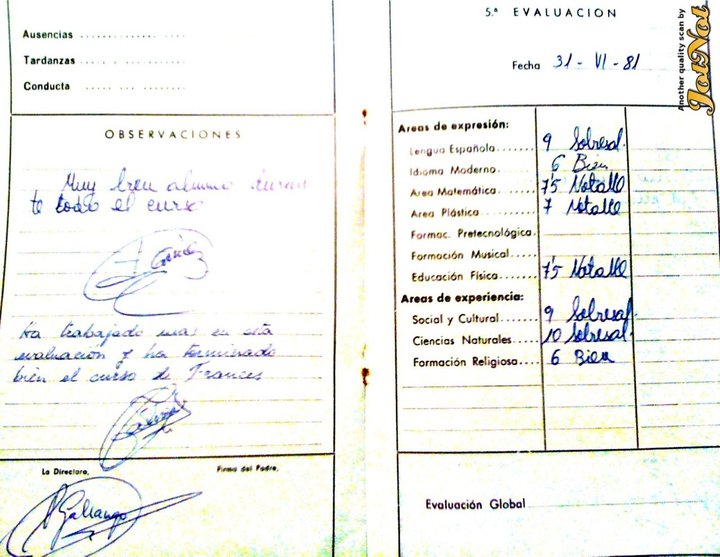 Ausencias
Tardanzas
Conducta
OBSERVACIONES
Muy bien alumno duran
te todo el curso
Ha trabajado mas en esta
evaluacion y ha terminado
bien el curso de Frances
La Directora,
Firma del Padre,
Galiango
5.ª EVALUACION
Fecha 31 - VI - 81
Areas de expresión:
Lengua Española 9 Sobresal.
Idioma Moderno 6 Bien
Area Matemática 7'5 Notable
Area Plástica 7 Notable
Formac. Pretecnológica
Formación Musical
Educación Física 7'5 Notable
Areas de experiencia:
Social y Cultural 9 Sobresal.
Ciencias Naturales 10 Sobresal.
Formación Religiosa 6 Bien
Evaluación Global
Another quality scan by
JotNot